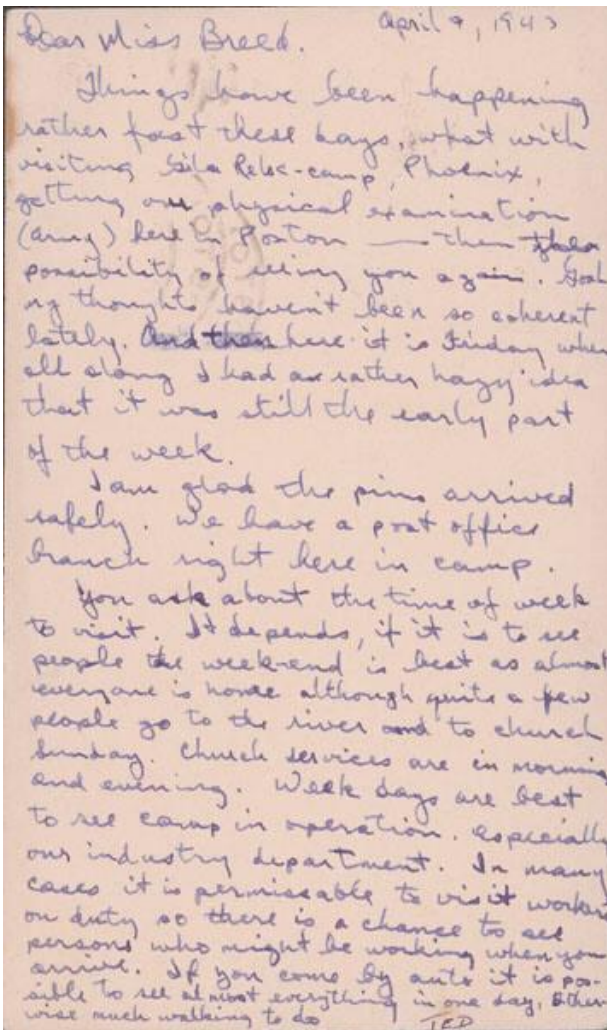 April 9, 1943
Dear Miss Breed.
Things have been happening
rather fast these days, what with
visiting Gila Relo-camp, Phoenix,
getting our physical examination
(army) here in Poston — then
possibility of seeing you again. Gosh
my thoughts haven't been so coherent
lately. And then here it is Friday when
all along I had a rather hazy idea
that it was still the early part
of the week.
I am glad the pins arrived
safely. We have a post office
branch right here in camp.
You ask about the time of week
to visit. It depends, if it is to see
people the week-end is best as almost
everyone is home although quite a few
people go to the river and to church
Sunday. Church services are in morning
and evening. Week days are best
to see camp in operation. especially
our industry department. In many
cases it is permissable to visit workers
on duty so there is a chance to see
persons who might be working when you
arrive. If you come by auto it is pos-
sible to see almost everything in one day, other
wise much walking to do
TED